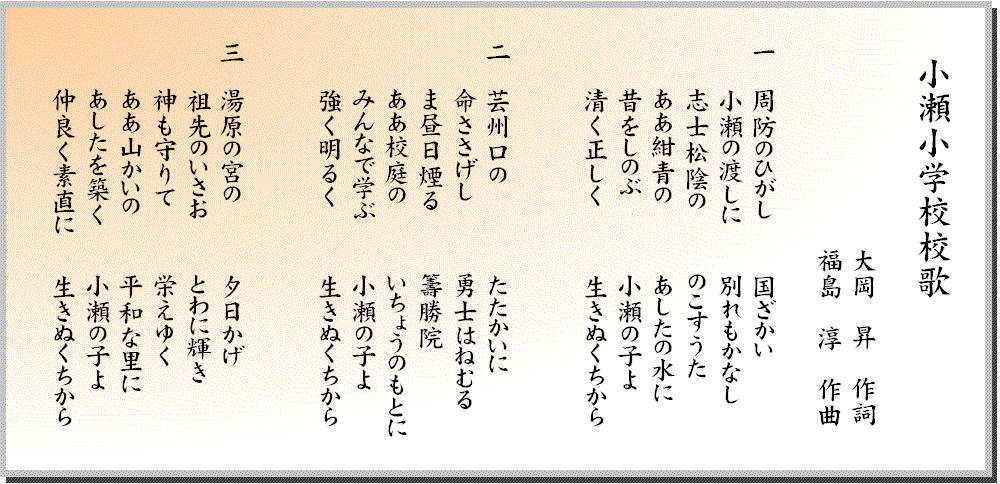 小瀬小学校校歌
大岡　昇　作詞
福島　淳　作曲
一
周防のひがし　国ざかい
小瀬の渡しに　別れもかなし
志士松陰の　のこすうた
ああ紺青の　あしたの水に
昔をしのぶ　小瀬の子よ
清く正しく　生きぬくちから
二
芸州口の　たたかいに
命ささげし　勇士はねむる
ま昼日煙る　籌勝院
ああ校庭の　いちょうのもとに
みんなで学ぶ　小瀬の子よ
強く明るく　生きぬくちから
三
湯原の宮の　夕日かげ
祖先のいさお　とわに輝き
神も守りて　栄えゆく
ああ山かいの　平和な里に
あしたを築く　小瀬の子よ
仲良く素直に　生きぬくちから